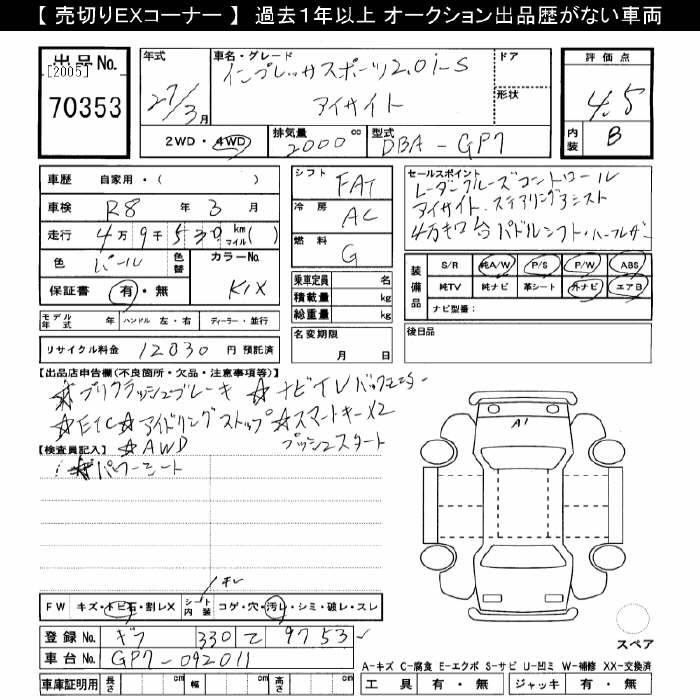 【 売切りEXコーナー 】 過去１年以上 オークション出品歴がない車両
出品No.
[2005]
70353
年式
27/3月
車名・グレード
インプレッサスポーツ2.0i-S
アイサイト
ドア
形状
2WD・4WD
排気量
2000cc
型式
DBA-GP7
評価点
4.5
内装
B
車歴 自家用・( )
車検 R8 年 3 月
走行 4万9千530 km マイル( )
色 パール 色替 カラーNo.
保証書 有・無 K1X
モデル年式 年 ハンドル 左・右 ディーラー・並行
リサイクル料金 12030 円 預託済
シフト FAT
冷房 AC
燃料 G
乗車定員 名
積載量 kg
総重量 kg
名変期限
月 日
セールスポイント
レーダークルーズコントロール
アイサイト.ステアリングアシスト
4万キロ台 パドルシフト・ハーフレザー
装備品
S/R 純A/W P/S P/W ABS
純TV 純ナビ 革シート 外ナビ エアB
ナビ型番:
後日品
【出品店申告欄(不良箇所・欠品・注意事項等)】
☆プリクラッシュブレーキ ☆ナビTVバックモニター
☆ETC☆アイドリングストップ☆スマートキーX2
【検査員記入】 ☆AWD プッシュスタート
☆パワーシート
A1
FW キズ・トビ石・割レX シート内装 コゲ・穴・汚レ・シミ・破レ・スレ
登録No. ギフ 330 て 9753
車台No. GP7-092011
車庫証明用 長さ cm 幅 cm 高さ cm
スペア
A-キズ C-腐食 E-エクボ S-サビ U-凹ミ W-補修 XX-交換済
工具 有・無 ジャッキ 有・無